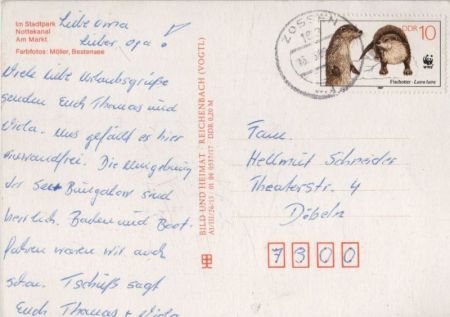 Im Stadtpark
Nottekanal
Am Markt
Farbfotos: Möller, Bestensee
Liebe Oma
Lieber Opa!
Viele liebe Urlaubsgrüße
senden Euch Thomas und
Viola. Uns gefällt es hier
einwandfrei. Die Umgebung
der See + Bungalow sind
herrlich. Baden und Boot-
fahren waren wir auch
schon. Tschüß sagt
Euch Thomas + Viola
BILD UND HEIMAT · REICHENBACH (VOGTL)
DDR 0,20 M
ZOSSEN
DDR 10
WWF
Fischotter - Lutra lutra
Fam.
Hellmut Schneider
Theaterstr. 4
Döbeln
7300